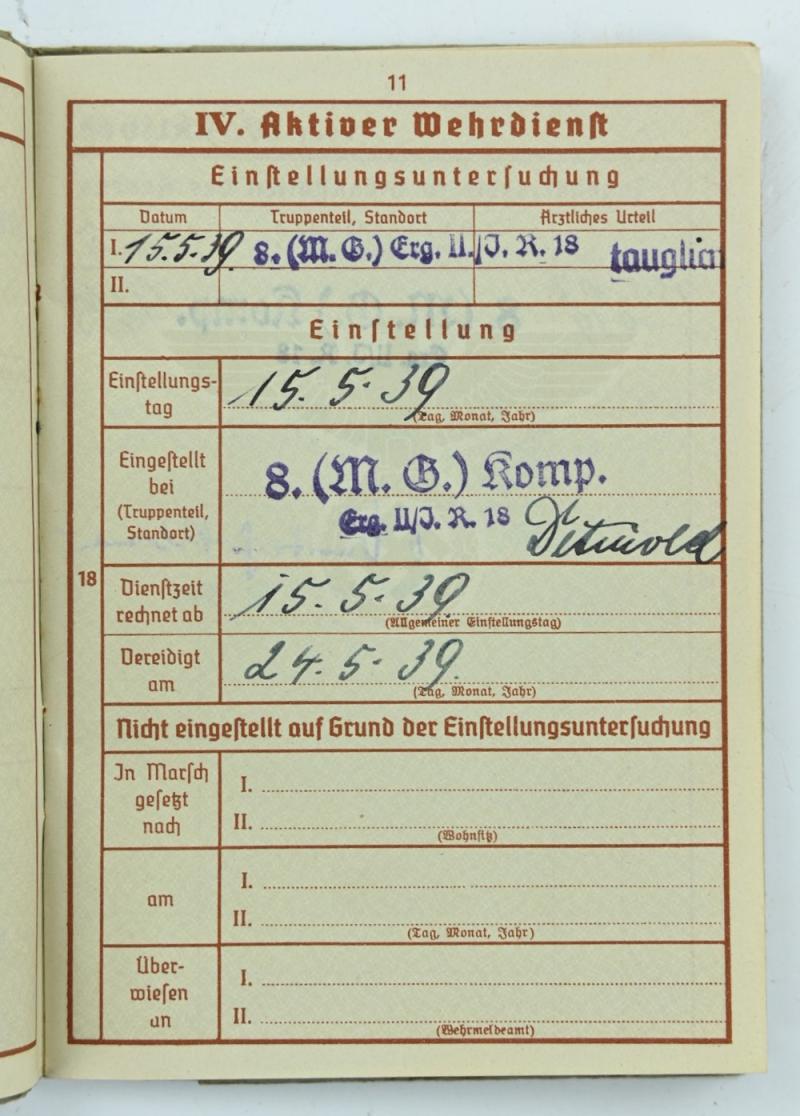 11
IV. Aktiver Wehrdienst
Einstellungsuntersuchung
Datum Truppenteil, Standort Ärztliches Urteil
I. 15.5.39. 8. (M. G.) Erg. II./J. R. 18 tauglich
II.
Einstellung
Einstellungs-
tag
15. 5. 39
(Tag, Monat, Jahr)
Eingestellt
bei
(Truppenteil,
Standort)
8. (M. G.) Komp.
Erg. II/J. R. 18 Detmold
18
Dienstzeit
rechnet ab
15. 5. 39
(Allgemeiner Einstellungstag)
Vereidigt
am
24. 5. 39.
(Tag, Monat, Jahr)
Nicht eingestellt auf Grund der Einstellungsuntersuchung
In Marsch
gesetzt
nach
I.
II.
(Wohnsitz)
am
I.
II.
(Tag, Monat, Jahr)
Über-
wiesen
an
I.
II.
(Wehrmeldeamt)